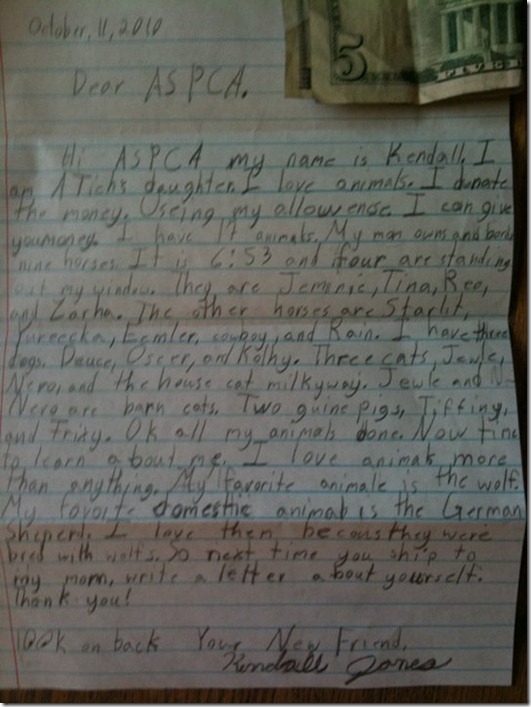 October, 11, 2010
5
Dear ASPCA.
Hi ASPCA my name is Kendall. I
am ATich's daughter. I love animals. I dunate
the money. Useing my allowense I can give
you money. I have 17 animals. My mom owns and bords
nine horses. It is 6:53 and four are standing
out my window. They are Jeminie, Tina, Reo,
and Zarha. The other horses are Starlit,
Eureecka, Eemler, cowboy, and Rain. I have three
dogs. Deuce, Oscer, and Kolhy. Three cats, Jewle,
Nero, and the house cat milkyway. Jewle and
Nero are barn cats. Two guine pigs, Tiffiny,
and Trixy. Ok all my animals done. Now time
to learn about me. I love animals more
than anything. My favorite animale is the wolf.
My favoite domestic animal is the German
Sheperd. I love them becaus they were
bred with wolfs. So next time you ship to
my mom, write a letter about yourself.
Thank you!
look on back Your New friend,
Kendall Jones